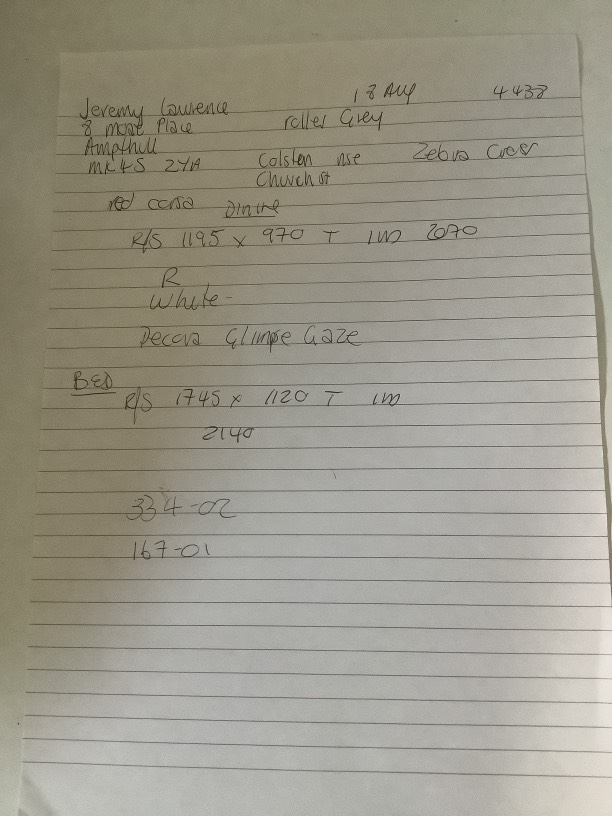 18 Aug 4438
Jeremy Lawrence
8 moat Place roller Grey
Ampthill
MK45 2YA Colsten hse Zebra Cross
Church st
red corsa Dining
R/S 1195 x 970 T 1m 2070
R
White -
Decora Glimpse Gaze
BED
R/S 1745 x 1120 T 1m
2140
334-02
167-01